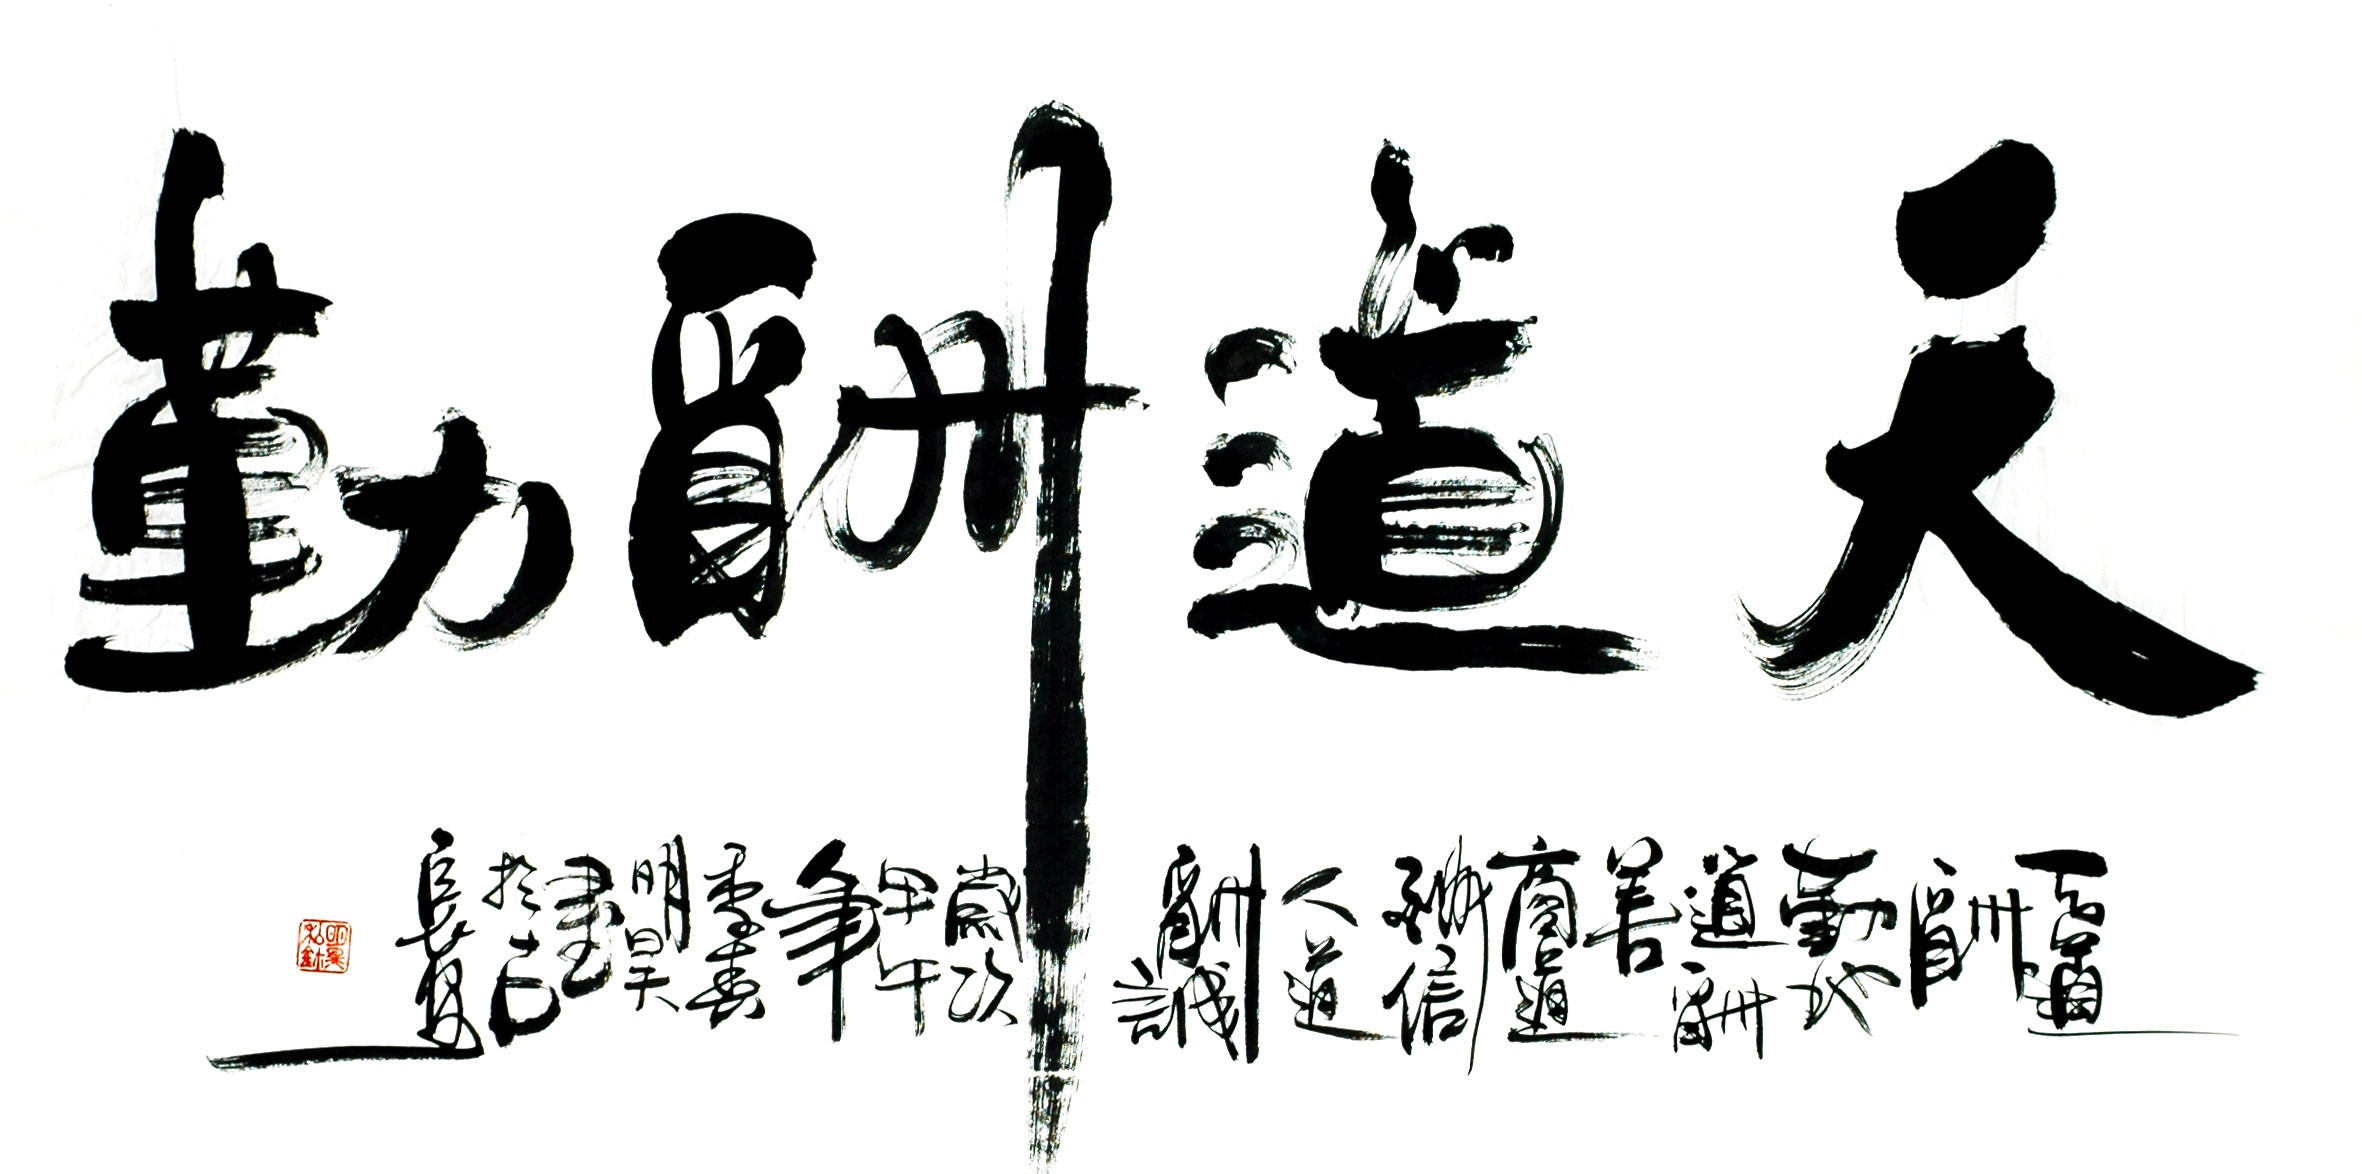 天道酬勤
天道酬勤地道酬善商道酬信人道酬誠
歲次甲午年季春明昊書於